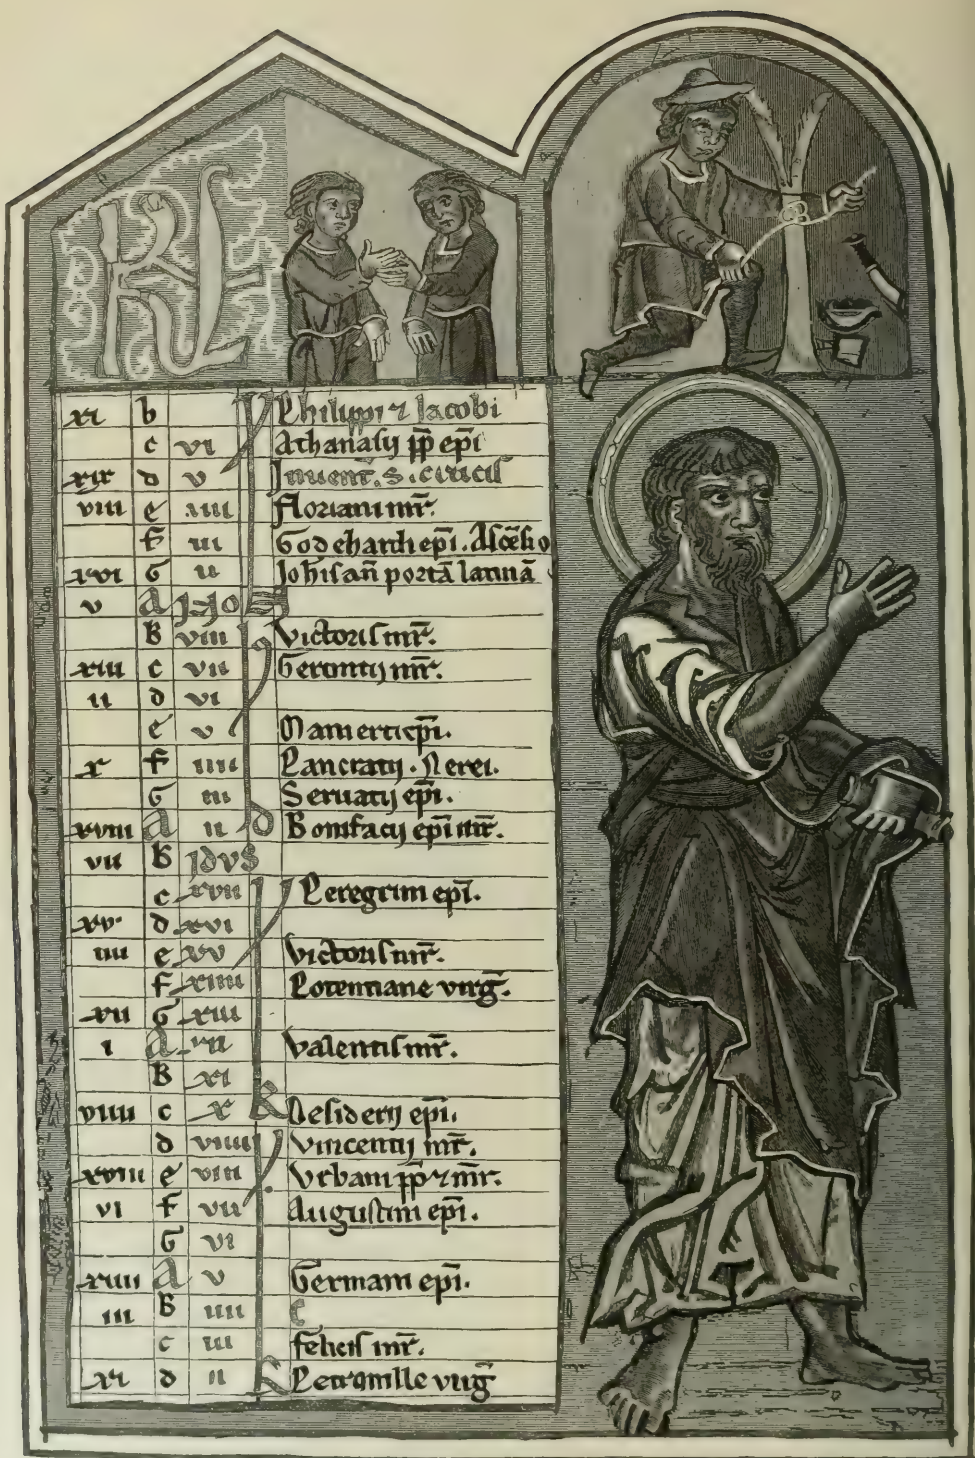 KL
xi b Philippi ⁊ Jacobi
c vi Athanasij pp̄ ep̄i
xix d v Inuent̄. s. crucis
viii e iiii Floriani mr̄.
f iii Godehardi ep̄i. Asce͞sio
xvi G ii Joh̄is an̄ portā latinā
v A
B viii Victoris mr̄.
xiii c vii Gerontij mr̄.
ii d vi
e v Mamerti ep̄i.
x f iiii Pancratij. Nerei.
G iii Seruatij ep̄i.
xviii A ii Bonifacij ep̄i mr̄.
vii B jdvs
c xvii Peregrini ep̄i.
xv. d xvi
iiii e xv Victoris mr̄.
f xiiii Potentiane virḡ.
xii G xiii
i A xii Valentis mr̄.
B xi
viiii c x Desiderij ep̄i.
d viiii Vincentij mr̄.
xviii e viii Vrbani pp̄ ⁊ mr̄.
vi f vii Augustini ep̄i.
G vi
xiiii A v Germani ep̄i.
iii B iiii
c iii felicis mr̄.
xi d ii Petronille virḡ